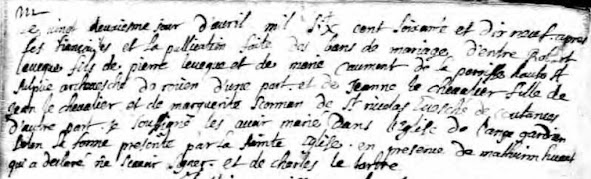 M
Le vingt deuxiesme jour d'avril mil six cent soixante et dix neuf apres
les fiançailles et la publication faite des bans de mariage d'entre Robert
leveque fils de pierre leveque et de marie caumont de la parroisse hauto St
sulpice archevesché de rouen d'une part. et de Jeanne le chevalier fille de
Jean le chevalier et de marguerite Romman de St nicolas Evesché de coutances
d'autre part. je soussigné les avoir mariés Dans l'Eglise de l'ange gardien
selon la forme presente par la sainte Eglise. en presence de mathurin huart
qui a declaré ne scavoir signer. et de charles le barbre